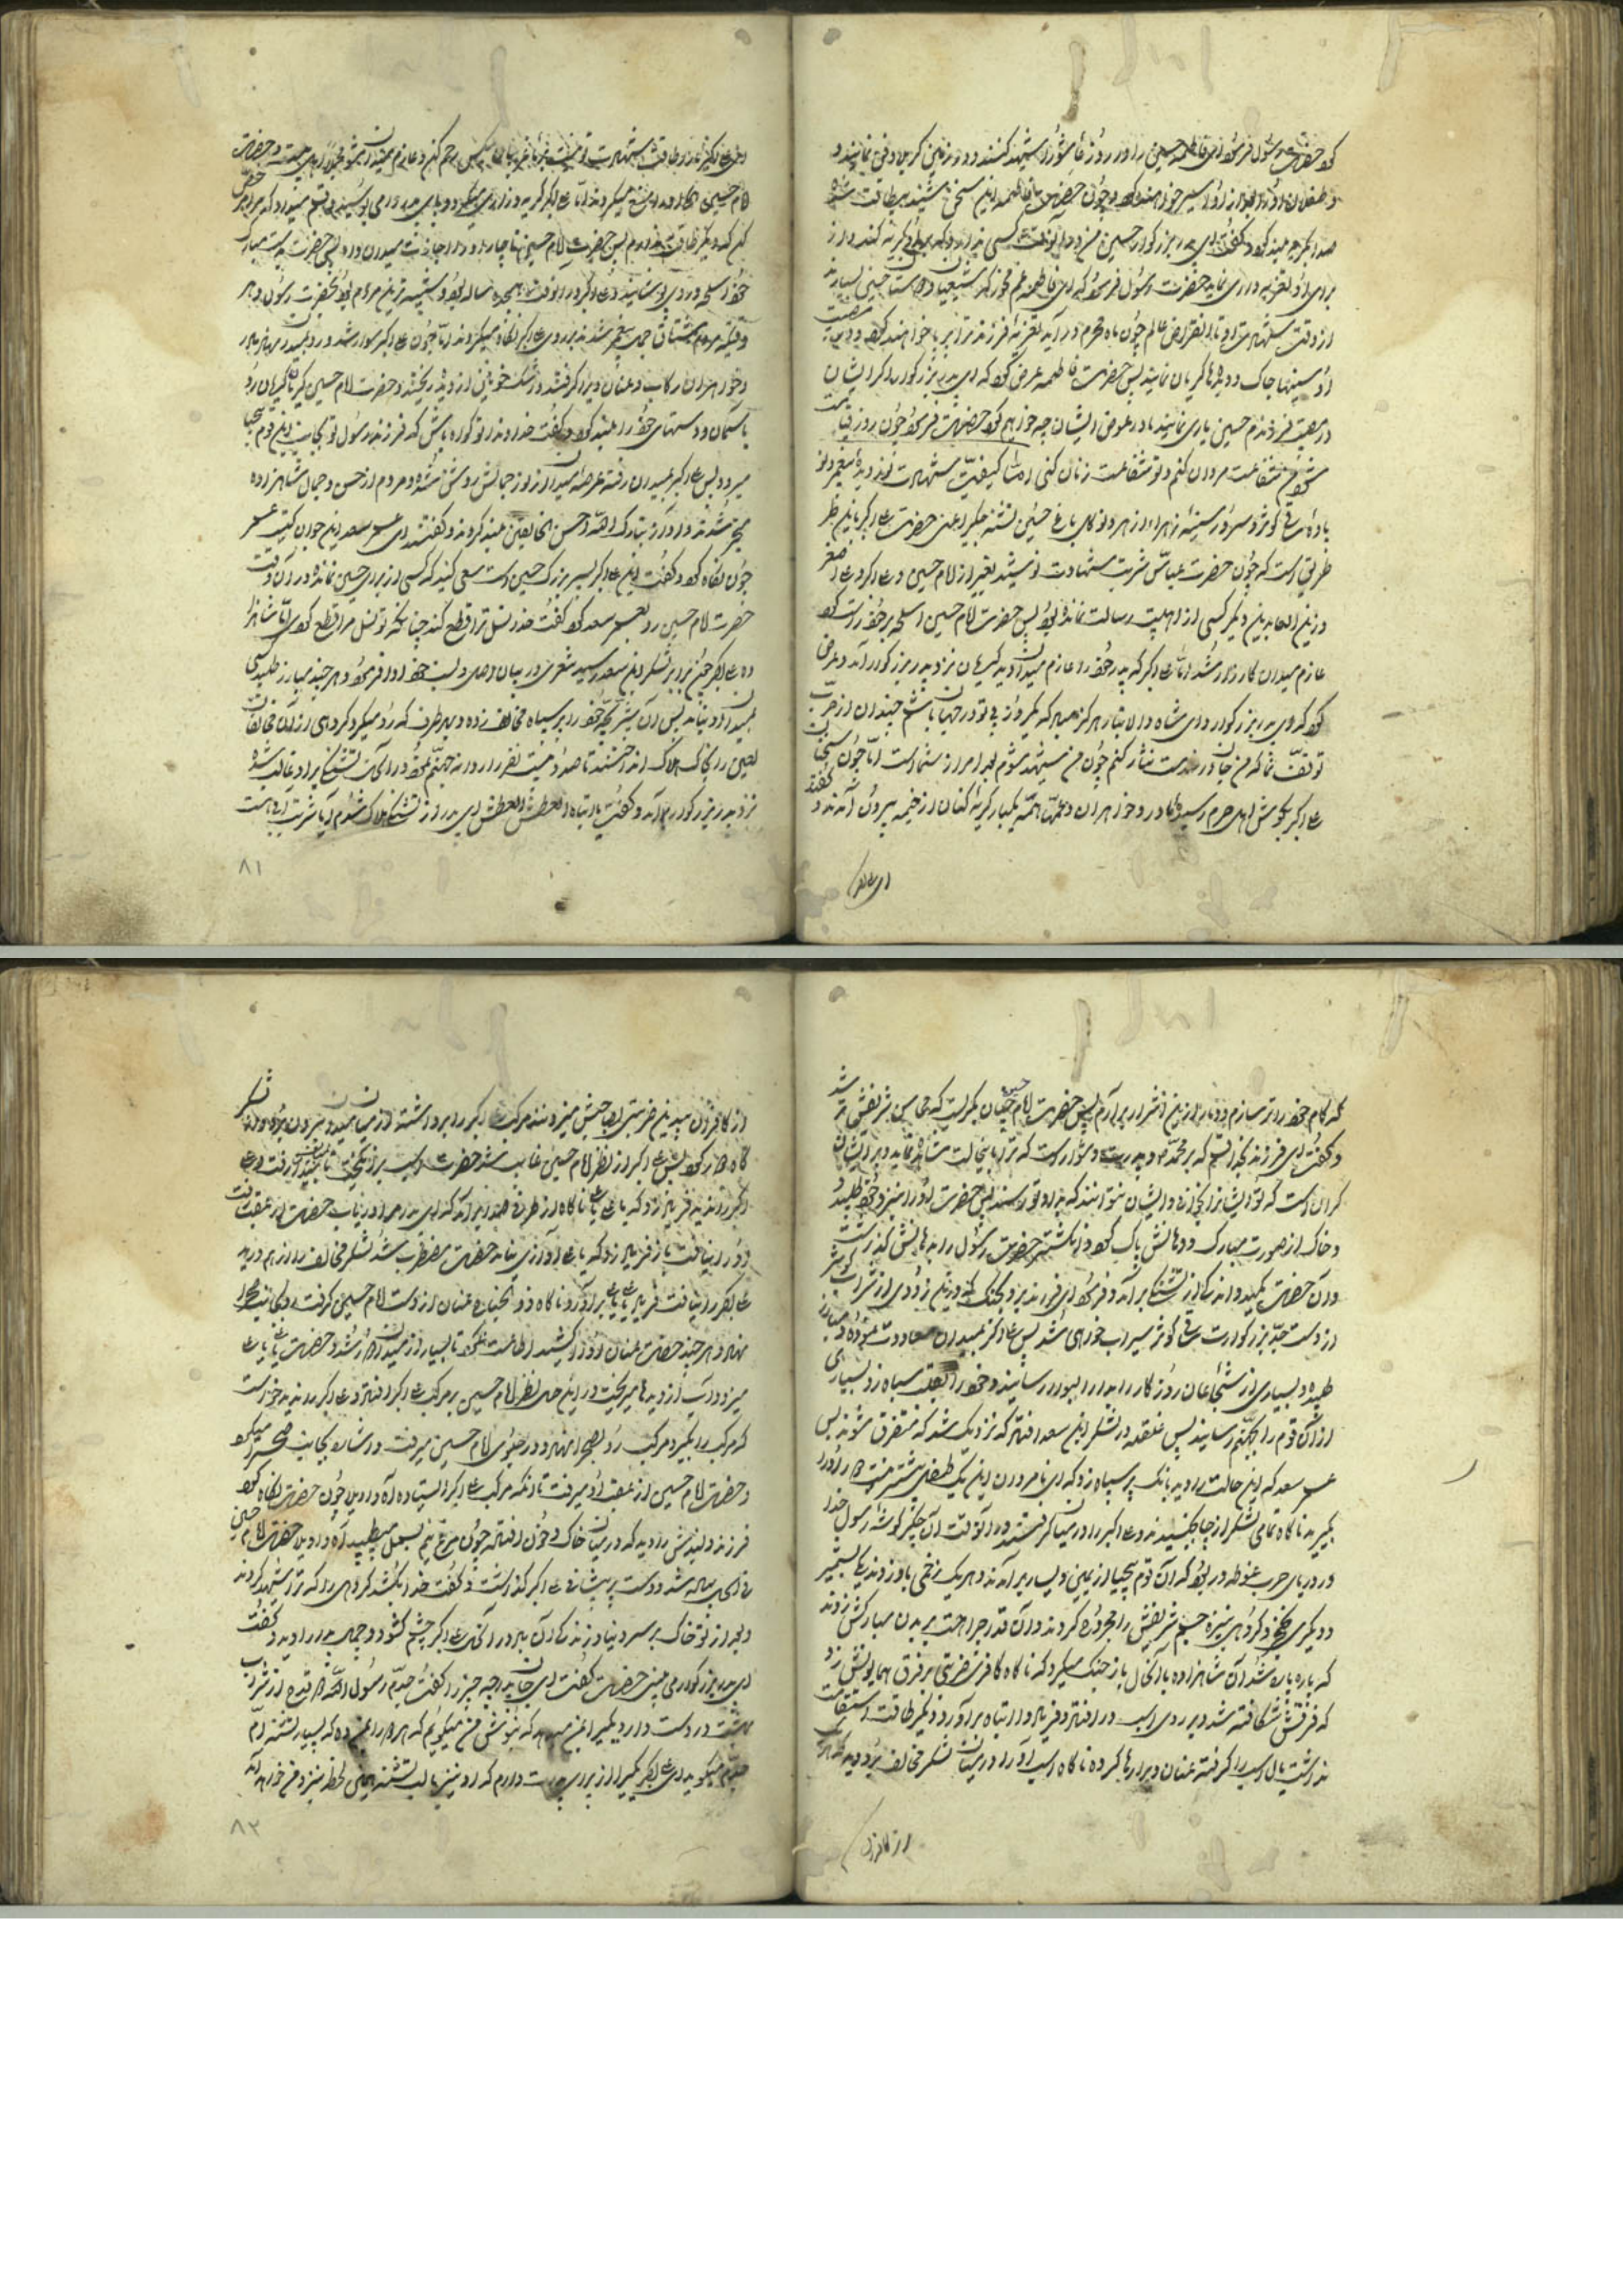 کرد حضرت رسول فرمود ای فاطمه حسین را در روز عاشورا شهید کنند و در زمین کربلا دفن نمایند و
و طفلان او را اسیر خواهند کرد و چون حضرت فاطمه این سخن شنید بیطاقت شده
صدا بگریه بلند کرد و گفت ای پدر بزرگوار حسین من در آنوقت کسی ندارد که برای او گریه کند و از
برای او تعزیه داری نماید حضرت رسول فرمود که ای فاطمه غم مخور که شیعیان و دوستان حسین بسیارند
از وقت شهادت او تا انقراض عالم چون ماه محرم در آید تعزیه فرزند ترا بر پا خواهند کرد و در مصیبت
او سینها چاک و دیدها گریان نمایند پس حضرت فاطمه عرض کرد که ای پدر بزرگوار اگر ایشان
در مصیبت فرزندم حسین یاری نمایند ما در عوض ایشان چه خواهیم کرد حضرت فرمود چون روز قیامت
شود من شفاعت مردان کنم و تو شفاعت زنان کنی اما کیفیت شهادت نور دیده پیغمبر و نور
باده ساقی کوثر و سرور سینه زهرا از هر و نوکل باغ حسین تشنه جگر اعنی حضرت علی اکبر باین طر
طریق است که چون حضرت عباس شربت شهادت نوشید بغیر از امام حسین و علی اکبر و علی اصغر
و زین العابدین دیگر کسی از اهلبیت رسالت نمانده بود پس حضرت امام حسین اسلحه بر خود راست کرد
عازم میدان کارزار شد اما علی اکبر که پدر خود را عازم میدان دید گریان نزد پدر بزرگوار آمد و عرض
کرد که ای پدر بزرگوار و ای شاه والا تبار هرگز مباد که یکروز بی تو در جهان باشم چندان از حرب
توقف نما که من جان در خدمت نثار کنم چون من شهید شوم بعد امر از شماست اما چون سخنان
علی اکبر بگوش اهل حرم رسید مادر و خواهران و عمها همه یکبار گریه کنان از خیمه بیرون آمدند و گفتند
ای علی اکبر
ای علی اکبر ما را طاقت شهادت تو نیست بما غریبان بیکس رحم کن و عازم میدان مشو
امام حسین
کن که دیگر طاقت ندارم پس حضرت امام حسین ناچار او را اجازت میدان داد پس حضرت بدست مبارک
خود اسلحه در وی پوشانید و علی اکبر در آنوقت هیجده ساله بود و شبیه ترین مردم بود بحضرت رسول و هر
وقتیکه مردم مشتاق جمال پیغمبر شدند بر روی علی اکبر نگاه میکردند اما چون علی اکبر سوار شد و رو بمیدان نهاد مادر
و خواهران رکاب و عنان ویرا گرفتند و اشک خونین از دیده ریختند و حضرت امام حسین گریان گریان رو
باسمان و دستهای خود را بلند کرد و گفت خداوندا تو گواه باش که فرزند رسول تو بجانب این قوم بیحیا
میرود پس علی اکبر بمیدان رفته عرصه میدان از نور جمالش روشن شده و مردم از حسن و جمال شاهزاده
متحیر شدند و آواز تبارک الله احسن الخالقین بلند کردند و گفتند ای عمر سعد این جوان کیست عمر
چون نگاه کرد گفت این علی اکبر پسر بزرگ حسین است سعی کنید که کسی از برای حسین نمانده در آن وقت
حضرت امام حسین رو بعمر سعد کرد گفت خدا نسل ترا قطع کند چنانکه تو نسل مرا قطع کردی اما شاهزا
ده علی اکبر چون برابر لشکر ابن سعد رسید شعری در بیان اصل و نسب خود ادا فرمود و هر چند مبارز طلبید کسی
بمیدان او نیامد پس آن شیر بچه خود را بر سپاه مخالف زده و بهر طرف که رو میکرد گروهی از آن مخالفان
لعین را بخاک هلاک انداختند تا صد و بیست نفر را روانه جهنم نمود در آن حالت تشنگی بر او غالب شده
نزد پدر بزرگوار آمد و گفت یا ابتاه العطش العطش ای پدر از تشنگی هلاک شدم آیا شربت آبی هست
٨١
که کام خود را تر سازم و دمار از این اشرار بر آرم پس حضرت امام حسین چنان بگریست که محاسن شریفش تر شد
و گفت ای فرزند بخدا قسم که بر محمد و پدرت دشوار است که ترا باینحالت مشاهده نماید و بر ایشان
گران است که تو ایشانرا بخوانی و ایشان نتوانند که بداد تو رسند پس حضرت او را نزد خود طلبید و
و خاک از صورت مبارک و دهانش پاک کرد و انگشتر حضرت رسول را بدهانش گذاشت
و آن حضرت مکیده اندکی از تشنگی برآمد و فرمود ای فرزند برو بجنگ که درین زودی از شراب کوثر
از دست جد بزرگوارت ساقی کوثر سیراب خواهی شد پس علی اکبر بمیدان معاودت نموده و مبارز
طلبیده و بسیاری از شجاعان روزگار را بدار البوار رسانید و خود را بقلب سپاه زد و بسیاری
از آن قوم را بجهنم رسانید پس غلغله در لشکر ابن سعد افتاد که نزدیک شد که متفرق شوند پس
عمر سعد که این حالت را دید بانگ بر سپاه زد که ای نامردان این یک طفلی بیشتر نیست دور او را
بگیرید ناگاه تمامی لشکر از جا جنبیدند و علی اکبر را در میان گرفتند و در آنوقت آن جگر گوشه رسول خدا
در دریای حرب غوطه ور بود که آن قوم بیحیا از یمین و یسار بر آمدند و هر یک زخمی باو زدند یکی بشمشیر
و دیگری بخنجر و گروهی بنیزه جسم شریفش را مجروح کردند و آن قدر جراحت بر بدن مبارکش زدند
که پاره پاره شد آن شاهزاده با آنحال باز جنگ میکرد که ناگاه کافری ضربتی بر فرق همایونش زد
که فرقش شکافته شد و بر روی اسب در افتاد و فریاد وا ابتاه بر آورد و دیگر طاقت استقامت
نداشت یال اسب را گرفته عنان ویرا رها کرده ناگاه اسب او را در میان لشکر مخالف برد و بهر کدام
از کافران
از کافران بیدین ضربتی بصاحبش میزدند مرکب علی اکبر را برداشته از میان میدان بیرون برد
گاه کرد پس علی اکبر از نظر امام حسین غایب شد حضرت اسب برانگیخت
اکبر را ندید فریاد زد که یا علی یا علی ناگاه از طرفی صدا بر آمد که ای پدر مرا دریاب حضرت از عقب رفت
و او را نیافت باز فریاد زد که یا علی آوازی نیامد حضرت مضطرب شد لشکر مخالف را از هم درید
علی اکبر را نیافت فریاد یا علی یا علی بر آورد ناگاه ذوالجناح عنان از دست امام حسین گرفت و بجانب صحرا
نهاد و هر چند حضرت عنان او را کشید اطاعت نکرد تا بسیار از میدان دور شد و حضرت یا علی یا علی
میزد و آب از دیدها میریخت در این حال نظر امام حسین بر مرکب علی اکبر افتاد و علی اکبر را ندید خواست
که مرکب را بگیرد مرکب رو بصحرا نهاد و در جلوی امام حسین میرفت و اشاره بجانب صحرا میکرد
و حضرت امام حسین از عقب او میرفت تا آنکه مرکب علی اکبر ایستاده آه و اویلا چون حضرت نگاه کرد
فرزند دلبندش را دید که در میان خاک و خون افتاده چون مرغ نیم بسمل میطپید آه و اویلا حضرت امام حسین
فی الحال پیاده شد و دست بر پیشانی علی اکبر گذاشت و گفت خدا بکشد گروهی را که ترا شهید کردند
و بعد از تو خاک بر سر دنیا و زندگانی آن باد در آنحال علی اکبر چشم گشود و جمال پدر را دید و گفت
ای پدر بزرگوار می بینی حضرت گفت ای جان پدر چه چیز را گفت جدم رسول الله دو قدح از شراب
بهشت در دست دارد یکی را بمن میدهد که بنوش من میگویم که هر دو را بمن ده که بسیار تشنه ام
جدم میگوید ای علی اکبر یکی را از برای پدرت دارم که او نیز با لب تشنه همین لحظه بنزد من خواهد آمد
٨٢